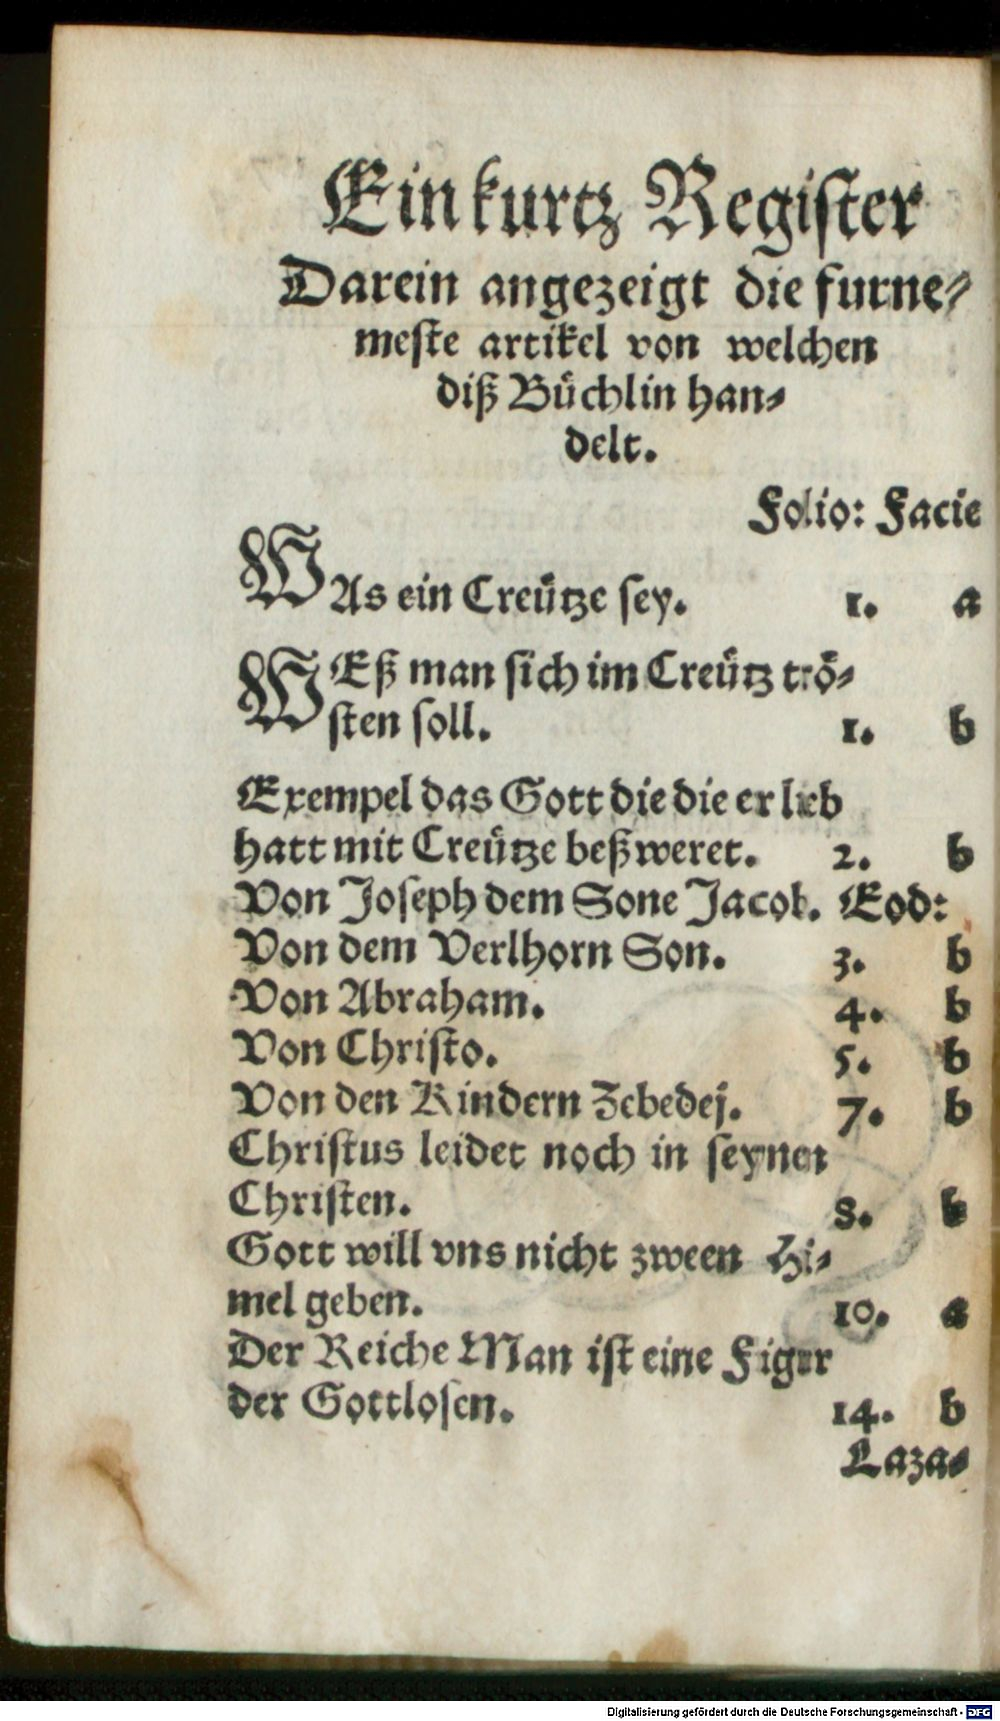 Ein kurtz Register
Darein angezeigt die furne⸗
meste artikel von welchen
diß Bůchlin han⸗
delt.
Folio: Facie
WAs ein Creůtze sey. 1. a
WEß man sich im Creůtz trö⸗
sten soll. 1. b
Exempel das Gott die die er lieb
hatt mit Creůtze beßweret. 2. b
Von Joseph dem Sone Jacob. Eod:
Von dem Verlhorn Son. 3. b
Von Abraham. 4. b
Von Christo. 5. b
Von den Kindern Zebedej. 7. b
Christus leidet noch in seynen
Christen. 8. b
Gott will vns nicht zween Hi⸗
mel geben. 10. a
Der Reiche Man ist eine Figur
der Gottlosen. 14. b
Laza⸗
Digitalisierung gefördert durch die Deutsche Forschungsgemeinschaft - DFG